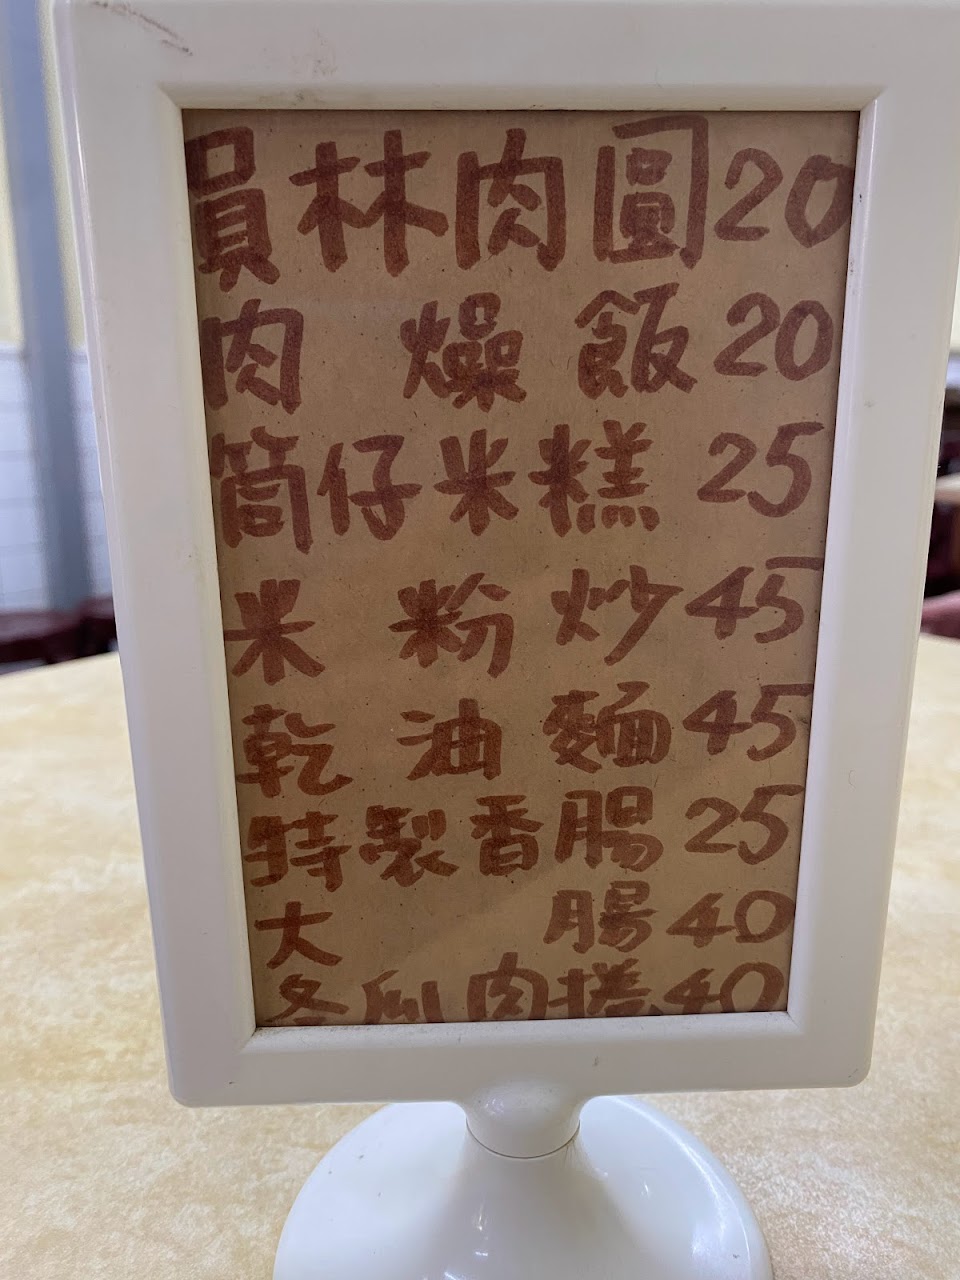 員林肉圓20
肉燥飯20
筒仔米糕 25
米粉炒45
乾油麵45
特製香腸25
大腸40
冬瓜肉捲40